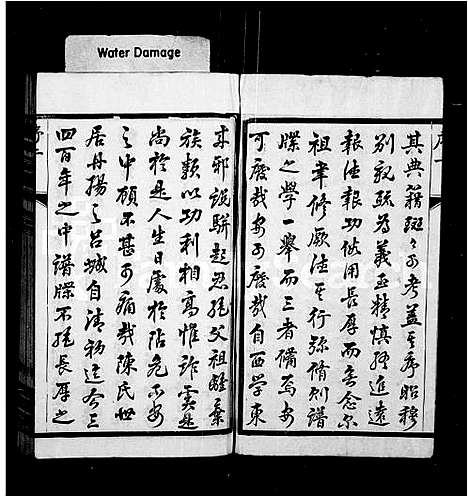 Water Damage
其典籍斑々可考蓋其序昭穆
別親疏為義至精慎終進遠
報德報功俶用長厚而無念尔
祖聿修厥德其行弥脩則譜
牒之學一舉而三者備焉安
可廢哉安可廢哉自西學東
來邪說騈起忍絕父祖離棄
族類以功利相高惟詐虞是
尚於是人生日處於阽危不安
之中顧不甚可痛哉陳氏世
居丹揚之呂城自清初迄今三
四百年之中譜牒不絕長厚之